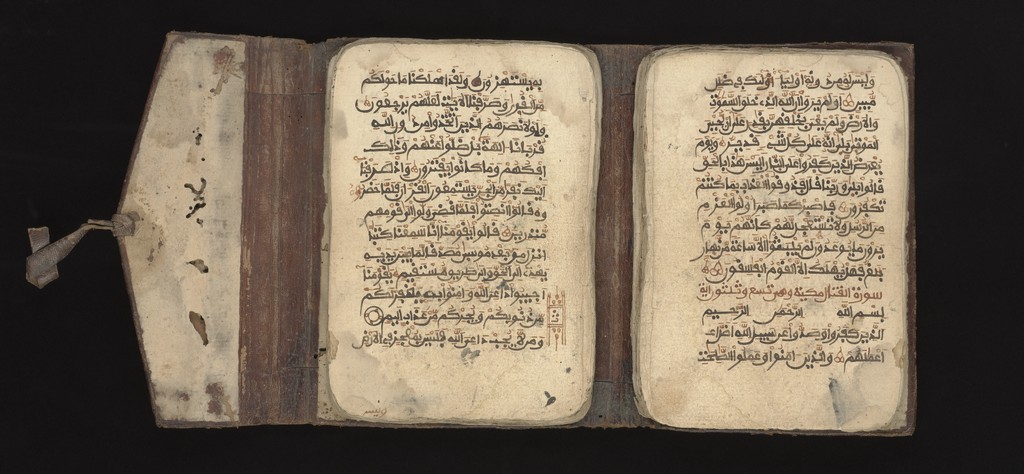 به يستهزءون ولقد اهلكنا ما حولكم
من القرى وصرفنا الايت لعلهم يرجعون
فلولا نصرهم الذين اتخذوا من دون الله
قربانا الهة بل ضلوا عنهم وذلك
افكهم وما كانوا يفترون واذ صرفنا
اليك نفرا من الجن يستمعون القران فلما حضر
وه قالوا انصتوا فلما قضي ولوا الى قومهم
منذرين قالوا يقومنا انا سمعنا كتبا
انزل من بعد موسى مصدقا لما بين يديه
يهدي الى الحق والى طريق مستقيم يقومنا
اجيبوا داعي الله وامنوا به يغفر لكم
من ذنوبكم ويجركم من عذاب اليم
ومن لا يجب داعي الله فليس بمعجز في الارض
وليس
وليس له من دونه اوليا اوليك في ضلل
مبين اولم يروا ان الله الذي خلق السموت
والارض ولم يعي بخلقهن بقدر على ان يحيي
الموتى بلى انه على كل شيء قدير ويوم
يعرض الذين كفروا على النار اليس هذا بالحق
قالوا بلى وربنا قال فذوقوا العذاب بما كنتم
تكفرون فاصبر كما صبر اولوا العزم
من الرسل ولا تستعجل لهم كانهم يوم
يرون ما يوعدون لم يلبثوا الا ساعة من نهار
بلغ فهل يهلك الا القوم الفسقون
سورة القتال مكية وهي تسع وثلثون اية
بسم الله الرحمن الرحيم
الذين كفروا وصدوا عن سبيل الله اضل
اعملهم والذين امنوا وعملوا الصلحت